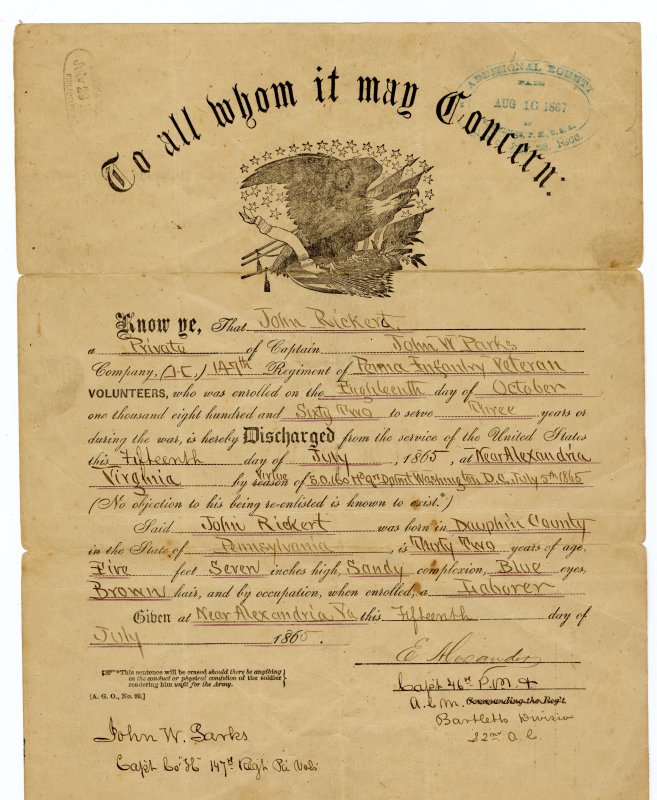 To all whom it may Concern:
ADDITIONAL BOUNTY
PAID
AUG 16 1867
BY
P. M., U. S. A.
Know ye, That John Rickert,
a Private of Captain John W Parks
Company, (A.C.) 147th Regiment of Penna Infantry Veteran
VOLUNTEERS, who was enrolled on the Eighteenth day of October
one thousand eight hundred and Sixty Two to serve Three years or
during the war, is hereby Discharged from the service of the United States
this Fifteenth day of July, 1865, at Near Alexandria
Virginia by reason of Virtue S.O. 160 Hd Qrs Dpt of Washington D.C. July 5th 1865
(No objection to his being re-enlisted is known to exist.*)
Said John Rickert was born in Dauphin County
in the State of Pennsylvania, is Thirty Two years of age,
Five feet Seven inches high, Sandy complexion, Blue eyes,
Brown hair, and by occupation, when enrolled, a Laborer
Given at Near Alexandria Va this Fifteenth day of
July 1865.
E Alexander
Capt 46th P.M &
A.C.M. Commanding the Reg't.
Bartletts Division
22nd A.C.
*This sentence will be erased should there be anything
in the conduct or physical condition of the soldier
rendering him unfit for the Army.
[A. G. O., No. 99.]
John W. Parks
Capt Co "H" 147th Regt Pa Vols